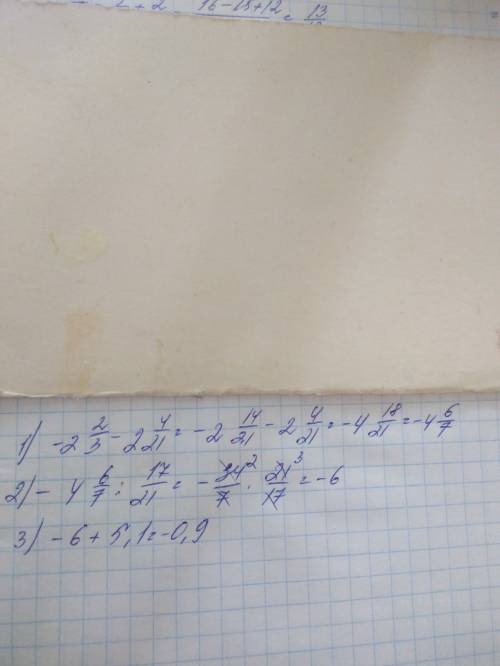 16-15+12 = 13
1) -2 2/3 - 2 4/21 = -2 14/21 - 2 4/21 = -4 18/21 = -4 6/7
2) - 4 6/7 : 17/21 = - 34²/7 · 21³/17 = -6
3) -6 + 5,1 = -0,9